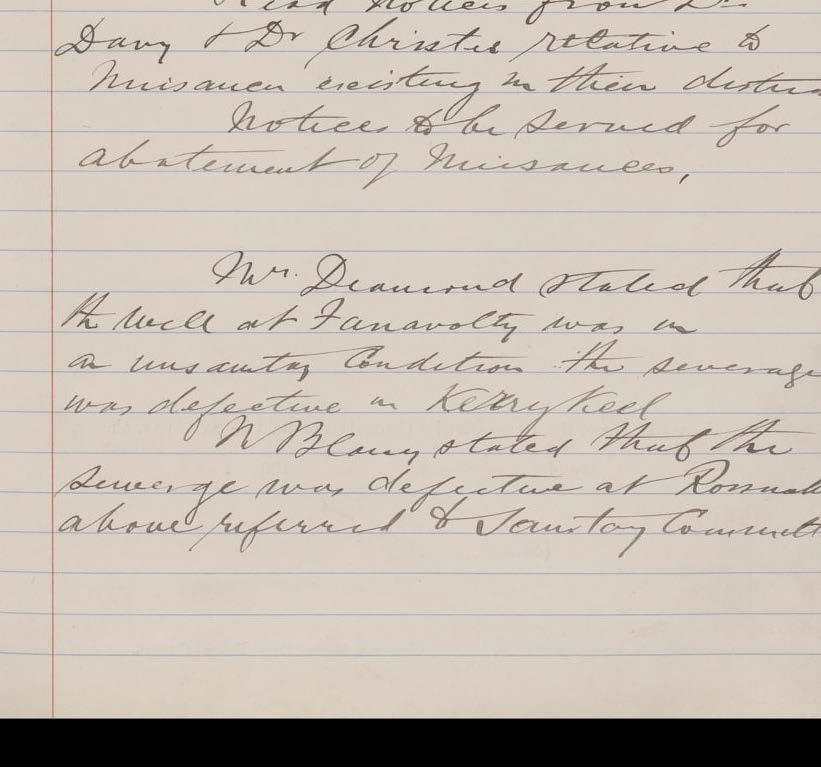 Read Notices from Drs
Davy & Dr Christie relative to
Nuisances existing in their district
Notices to be served for
abatement of Nuisances,
Mr. Diamond stated that
the well at Fanavolty was in
an unsanitay Condition the severage
was defective in Kerrykeel
N Blaney stated that the
Sewerge was defective at
above referred to Sanitay Committ